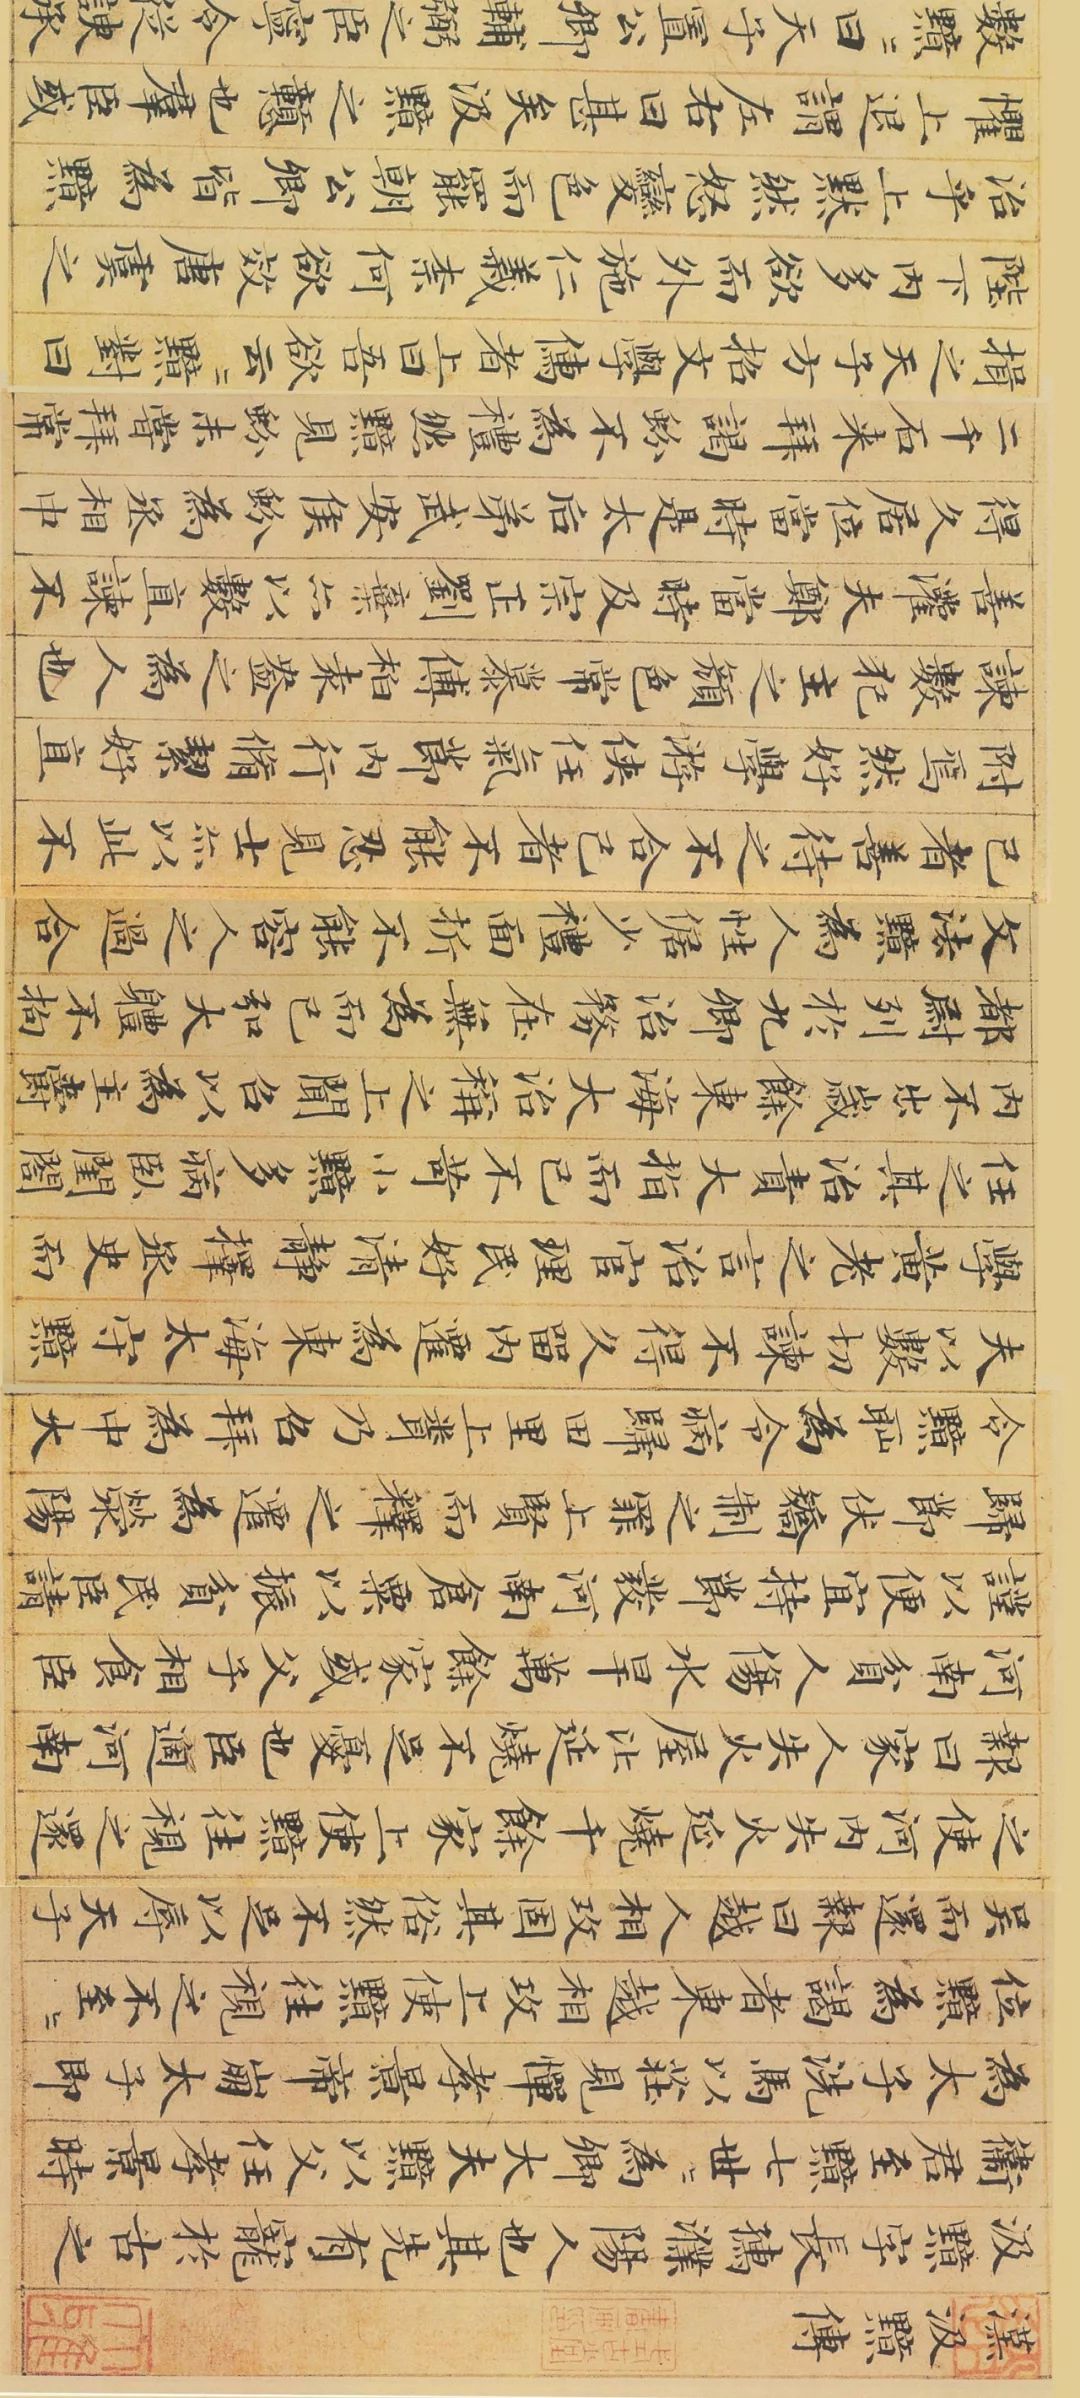 漢汲黯傳
汲黯字長孺濮陽人也其先有寵於古之
衛君至黯七世〻為卿大夫黯以父任孝景時
為太子洗馬以莊見憚孝景帝崩太子即
位黯為謁者東越相攻上使黯往視之不至〻
吳而還報曰越人相攻固其俗然不足以辱天子
之使河內失火延燒千餘家上使黯往視之還
報曰家人失火屋比延燒不足憂也臣過河南
河南貧人傷水旱萬餘家或父子相食臣
謹以便宜持節發河南倉粟以振貧民臣請
歸節伏矯制之罪上賢而釋之遷為滎陽
令黯恥為令病歸田里上聞乃召拜為中大
夫以數切諫不得久留內遷為東海太守黯
學黃老之言治官理民好清靜擇丞史而
任之其治責大指而已不苛小黯多病臥閨閤
內不出歲餘東海大治稱之上聞召以為主爵
都尉列於九卿治務在無為而已弘大體不拘
文法黯為人性倨少禮面折不能容人之過合
己者善待之不合己者不能忍見士亦以此不
附焉然好學游俠任氣節內行脩絜好直
諫數犯主之顏色常慕傅柏袁盎之為人也
善灌夫鄭當時及宗正劉棄亦以數直諫不
得久居位當時是太后弟武安侯蚡為丞相中
二千石來拜謁蚡不為禮然黯見蚡未嘗拜常
揖之天子方招文學儒者上曰吾欲云〻黯對曰
陛下內多欲而外施仁義柰何欲效唐虞之
治乎上默然怒變色而罷朝公卿皆為黯
懼上退謂左右曰甚矣汲黯之戇也羣臣或
數黯〻曰天子置公卿輔弼之臣寧令從諛承